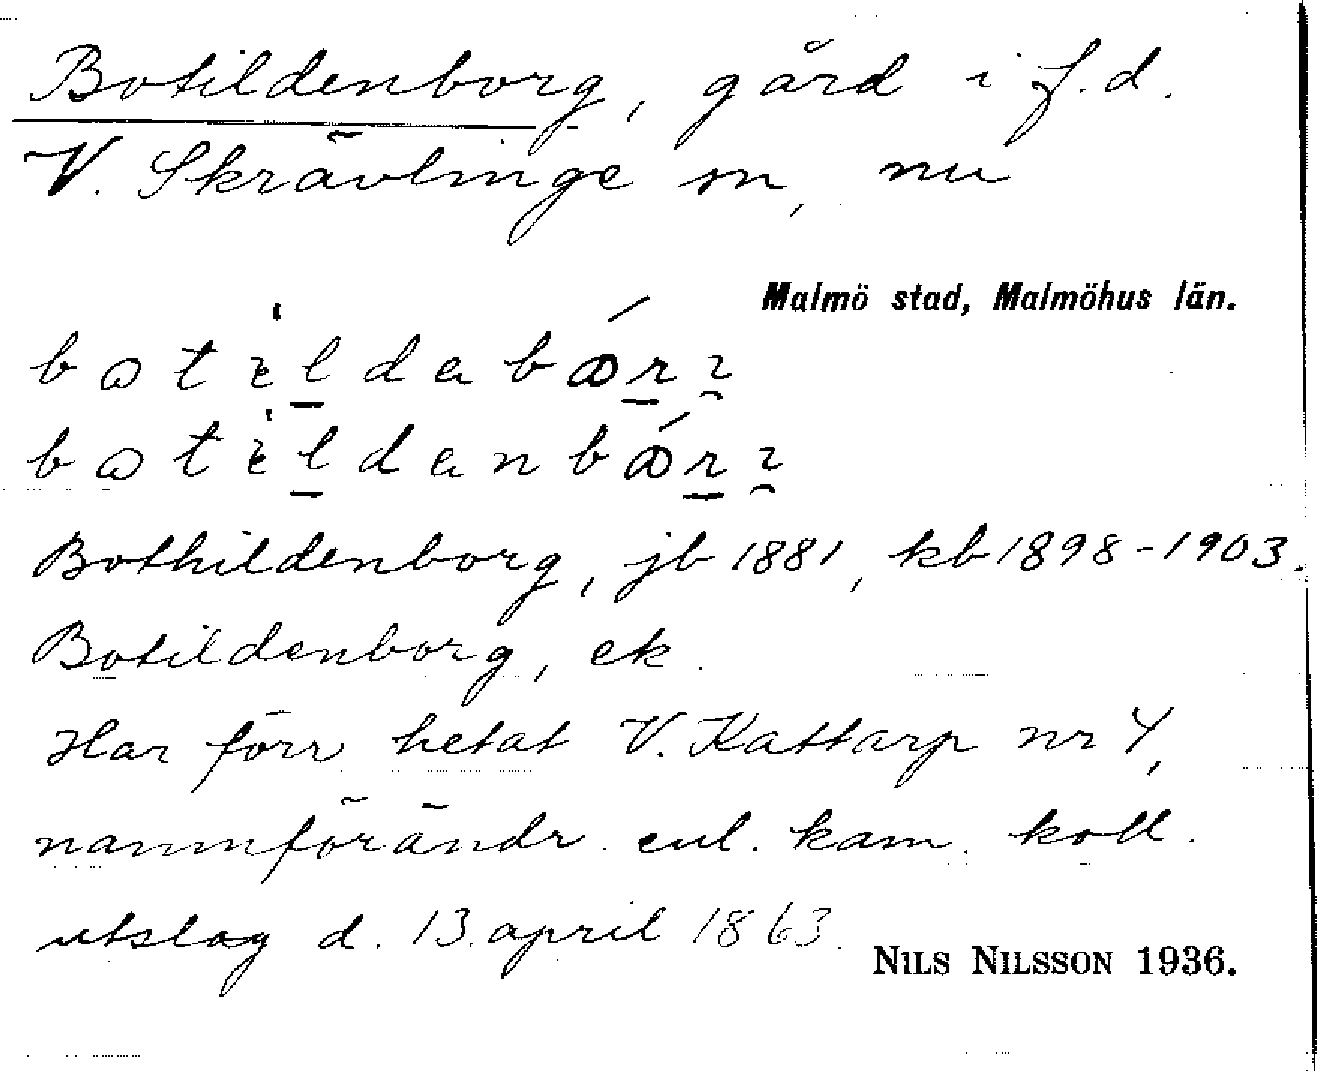 Botildenborg, gård i f.d.
V. Skrävlinge sn, nu
Malmö stad, Malmöhus län.
Bothildenborg, jb 1881, kb 1898-1903.
Botildenborg, ek.
Har förr hetat V. Kattarp nr 4,
namnförändr. enl. kam. koll.
utslag d. 13. april 1863.
NILS NILSSON 1936.